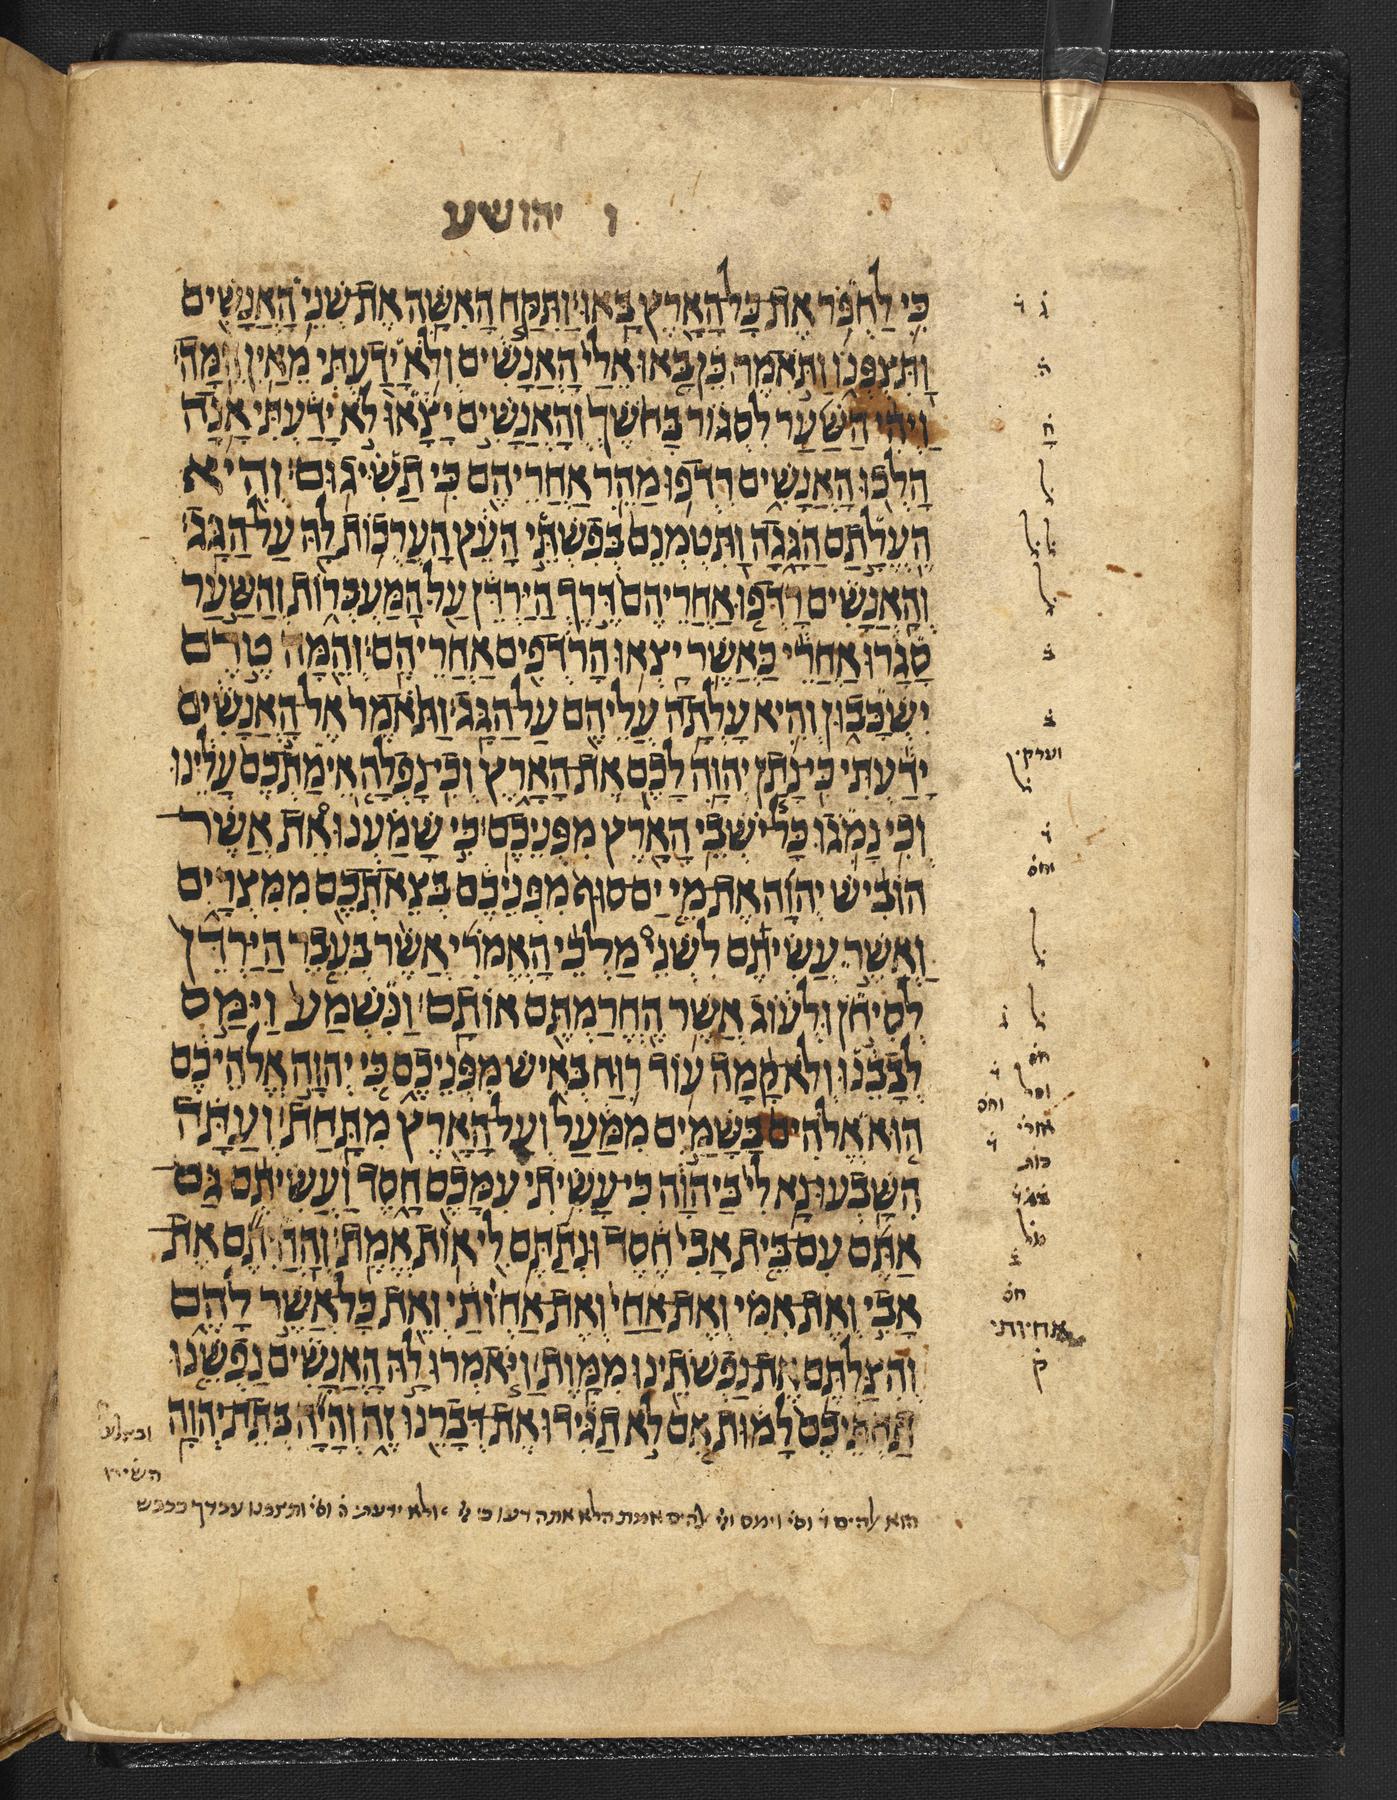 ו יהושע
כִּי לַחְפֹּר אֶת כָּל הָאָרֶץ בָּאוּ׃ וַתִּקַּח הָאִשָּׁה אֶת שְׁנֵי הָאֲנָשִׁים
וַתִּצְפְּנוֹ וַתֹּאמֶר כֵּן בָּאוּ אֵלַי הָאֲנָשִׁים וְלֹא יָדַעְתִּי מֵאַיִן הֵמָּה׃
וַיְהִי הַשַּׁעַר לִסְגּוֹר בַּחֹשֶׁךְ וְהָאֲנָשִׁים יָצָאוּ לֹא יָדַעְתִּי אָנָה
הָלְכוּ הָאֲנָשִׁים רִדְפוּ מַהֵר אַחֲרֵיהֶם כִּי תַשִּׂיגוּם׃ וְהִיא
הֶעֱלָתַם הַגָּגָה וַתִּטְמְנֵם בְּפִשְׁתֵּי הָעֵץ הָעֲרֻכוֹת לָהּ עַל הַגָּג׃
וְהָאֲנָשִׁים רָדְפוּ אַחֲרֵיהֶם דֶּרֶךְ הַיַּרְדֵּן עַל הַמַּעְבְּרוֹת וְהַשַּׁעַר
סָגָרוּ אַחֲרֵי כַּאֲשֶׁר יָצְאוּ הָרֹדְפִים אַחֲרֵיהֶם׃ וְהֵמָּה טֶרֶם
יִשְׁכָּבוּן וְהִיא עָלְתָה עֲלֵיהֶם עַל הַגָּג׃ וַתֹּאמֶר אֶל הָאֲנָשִׁים
יָדַעְתִּי כִּי נָתַן יְהוָה לָכֶם אֶת הָאָרֶץ וְכִי נָפְלָה אֵימַתְכֶם עָלֵינוּ
וְכִי נָמֹגוּ כָּל יֹשְׁבֵי הָאָרֶץ מִפְּנֵיכֶם׃ כִּי שָׁמַעְנוּ אֵת אֲשֶׁר
הוֹבִישׁ יְהוָה אֶת מֵי יַם סוּף מִפְּנֵיכֶם בְּצֵאתְכֶם מִמִּצְרָיִם
וַאֲשֶׁר עֲשִׂיתֶם לִשְׁנֵי מַלְכֵי הָאֱמֹרִי אֲשֶׁר בְּעֵבֶר הַיַּרְדֵּן
לְסִיחֹן וּלְעוֹג אֲשֶׁר הֶחֱרַמְתֶּם אוֹתָם׃ וַנִּשְׁמַע וַיִּמַּס
לְבָבֵנוּ וְלֹא קָמָה עוֹד רוּחַ בְּאִישׁ מִפְּנֵיכֶם כִּי יְהוָה אֱלֹהֵיכֶם
הוּא אֱלֹהִים בַּשָּׁמַיִם מִמַּעַל וְעַל הָאָרֶץ מִתָּחַת׃ וְעַתָּה
הִשָּׁבְעוּ נָא לִי בַּיהוָה כִּי עָשִׂיתִי עִמָּכֶם חָסֶד וַעֲשִׂיתֶם גַּם
אַתֶּם עִם בֵּית אָבִי חֶסֶד וּנְתַתֶּם לִי אוֹת אֱמֶת׃ וְהַחֲיִתֶם אֶת
אָבִי וְאֶת אִמִּי וְאֶת אַחַי וְאֶת אַחְוֹתַי וְאֵת כָּל אֲשֶׁר לָהֶם
וְהִצַּלְתֶּם אֶת נַפְשֹׁתֵינוּ מִמָּוֶת׃ וַיֹּאמְרוּ לָהּ הָאֲנָשִׁים נַפְשֵׁנוּ
תַחְתֵּיכֶם לָמוּת אִם לֹא תַגִּידוּ אֶת דְּבָרֵנוּ זֶה וְהָיָה בְּתֵת יְהוָה
ג̇ ו̇
ה̇
ח̇
ל
ל
ל
ב̇
ב̇
ל
ו̇
וחס̇
ל
ל ג̇
חס̇
וחס̇
ו̇
ב̇
חס̇
אחיותי
ק̇